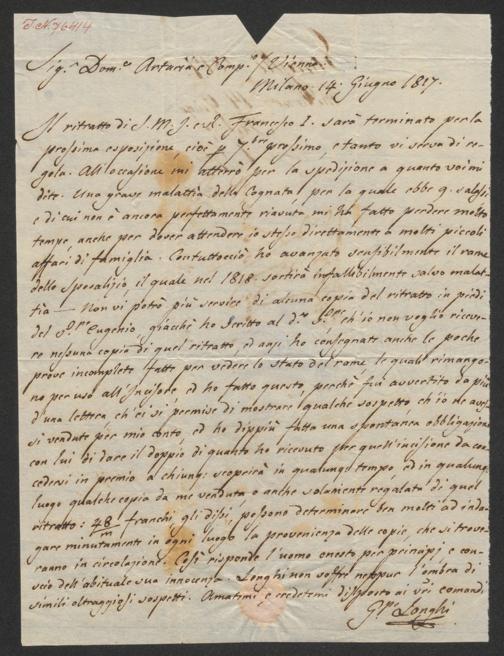 I.N. 76414
Sig.r Dom.co Artaria e Comp.i Vienna
Milano 14. Giugno 1817.
Il ritratto di S. M. I. e R. Francesco I. sarà terminato per la
prossima esposizione, cioè p 7.bre prossimo, e tanto vi serva di re-
gola. All'occasione mi atterrò per la spedizione a quanto voi mi
dite. Una grave malattia della Cognata, per la quale ebbe 9. salassi
e di cui non è ancora perfettamente riavuta mi ha fatto perdere molto
tempo, anche per dover attendere io stesso direttamente a molti piccoli
affari di famiglia. Contuttociò ho avanzato sensibilmente il rame
dello sposalizio, il quale nel 1818. sortirà infallibilmente salvo malat-
tia — Non vi potrà più servire di alcuna copia del ritratto in piedi
del Eugenio, giacchè ho scritto al ch'io non voglio riceve-
re nessuna copia di quel ritratto ed anzi ho consegnate anche le poche
prove incomplete fatte per vedere lo stato del rame le quali rimango-
no per uso all'Incisore ed ho fatto questo, perchè fui avvertito da più
d'una lettera ch'ei si permise di mostrare qualche sospetto ch'io ne aves-
si vendute per mio conto, ed ho dippiù fatta una spontanea obbligazione
con lui di dare il doppio di quanto ho ricevuto per quell'incisione da con-
cedersi in premio a chiunq. scoprirà in qualunq. tempo ed in qualunq.
luogo qualche copia da me venduta o anche solamente regalata di quel
ritratto: 48/m franchi gli dissi, possono determinare ben molti ad inda-
gare minutamente in ogni luogo la provenienza delle copie che si trove-
ranno in circolazione. Così risponde l'uomo onesto per principj e con-
scio dell'abituale sua innocenza. Longhi non soffre neppur l'ombra di
simili oltraggiosi sospetti. Amatemi e credetemi disposto ai vri comandi
Gpe Longhi